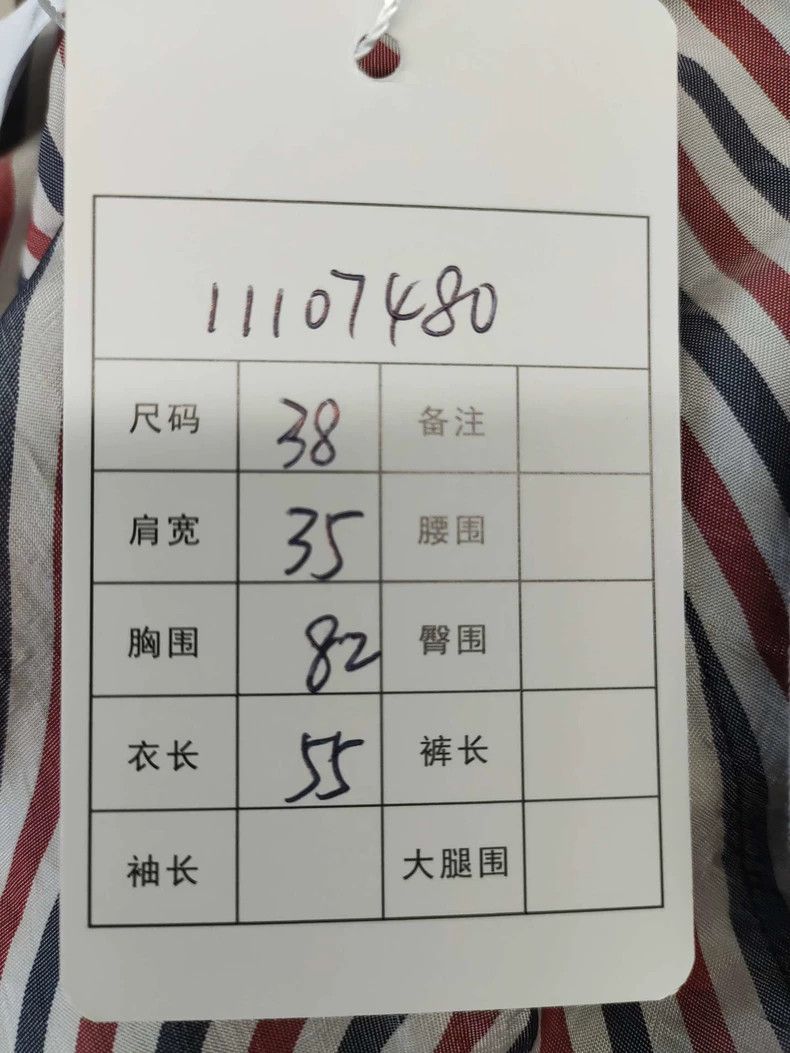 11107480
尺码 38 备注
肩宽 35 腰围
胸围 82 臀围
衣长 55 裤长
袖长 大腿围